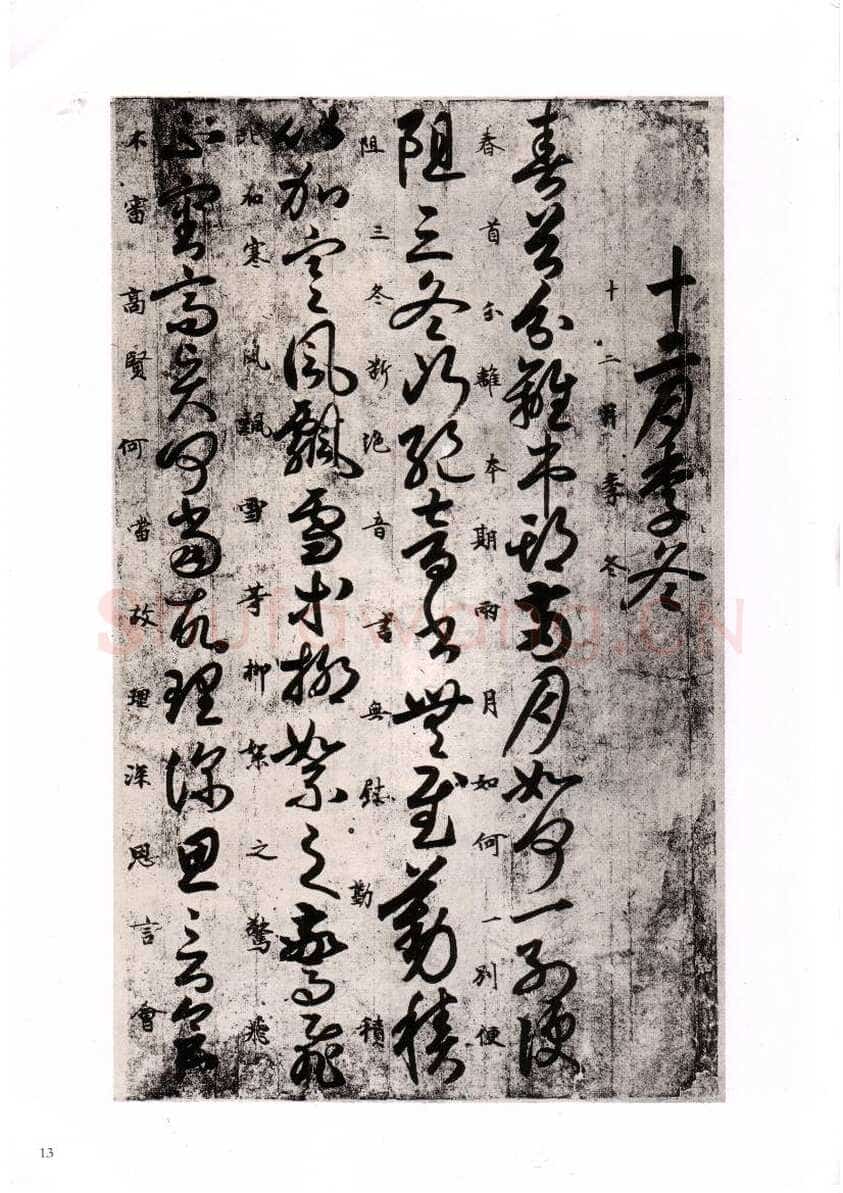 十二月季冬
十二月季冬
春首分離本期兩月如何一別便
春首分離本期兩月如何一別便
阻三冬斷絕音書無慰勤積
阻三冬斷絕音書無慰勤積
比加寒風飄雪等柳絮之驚飛
比加寒風飄雪等柳絮之驚飛
不審高賢何當故理深思言會
不審高賢何當故理深思言會
Shufawang.CN
13